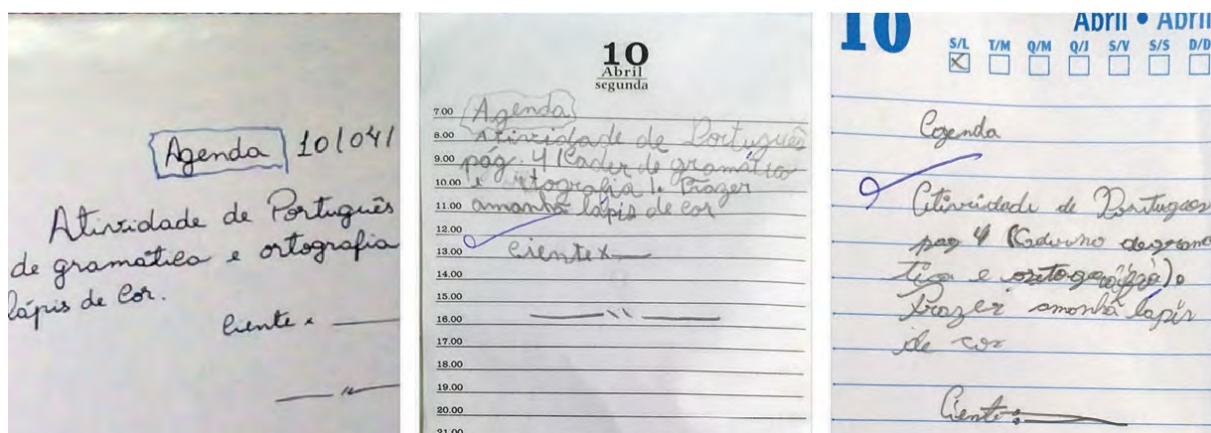 Agenda 10/04/
Atividade de Português
de gramática e ortografia
lápis de cor.
Ciente x
10
Abril
segunda
7.00 Agenda
8.00 Atividade de Português
9.00 pág. 4 (Cader de gramática
10.00 e ortografia). Trazer
11.00 amanhã lápis de cor
12.00
13.00 Ciente x
14.00
15.00
16.00
17.00
18.00
19.00
20.00
21.00
10 Abril • Abril
S/L T/M Q/M Q/J S/V S/S D/D
Agenda
Atividade de Portugues
pag 4 (Caderno de grama
tica e ortografia).
Trazer amanhã lápis
de cor
Ciente: